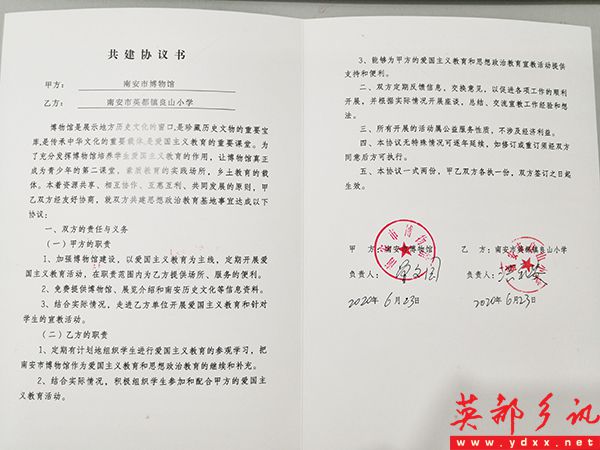 共建协议书
甲方： 南安市博物馆
乙方： 南安市英都镇良山小学
博物馆是展示地方历史文化的窗口,是珍藏历史文物的重要宝
库,是传承中华文化的重要载体,是爱国主义教育的重要课堂。为
了充分发挥博物馆培养学生爱国主义教育的作用，让博物馆真正
成为青少年的第二课堂、素质教育的实践场所，乡土教育的载
体。本着资源共享、相互协作、互惠互利、共同发展的原则，甲
乙双方经友好协商，就双方共建思想政治教育基地事宜达成以下
协议：
一、双方的责任与义务
（一）甲方的职责
1、加强博物馆建设，以爱国主义教育为主线，定期开展爱
国主义教育活动，在职责范围内为乙方提供场所、服务的便利。
2、免费提供博物馆、展览介绍和南安历史文化等信息资料。
3、结合实际情况，走进乙方单位开展爱国主义教育和针对
学生的宣教活动。
（二）乙方的职责
1、定期有计划地组织学生进行爱国主义教育的参观学习，把
南安市博物馆作为爱国主义教育和思想政治教育的继续和补充。
2、结合实际情况，积极组织学生参加和配合甲方的爱国主
义教育活动。
3、能够为甲方的爱国主义教育和思想政治教育宣教活动提供
支持和便利。
二、双方定期反馈信息，交换意见，以促进各项工作的顺利
开展，并根据实际情况开展座谈，总结、交流宣教工作经验和想
法。
三、所有开展的活动属公益服务性质，不涉及经济利益。
四、本协议无特殊情况可逐年延续，如修订或重订须经双方
同意后方可执行。
五、本协议一式两份，甲乙双方各执一份，双方签订之日起
生效。
甲 方：南安市博物馆
负责人：
2020年 6月23日
乙 方：南安市英都镇良山小学
负责人：
2020年 6月23日
英都乡讯
www.ydxx.net